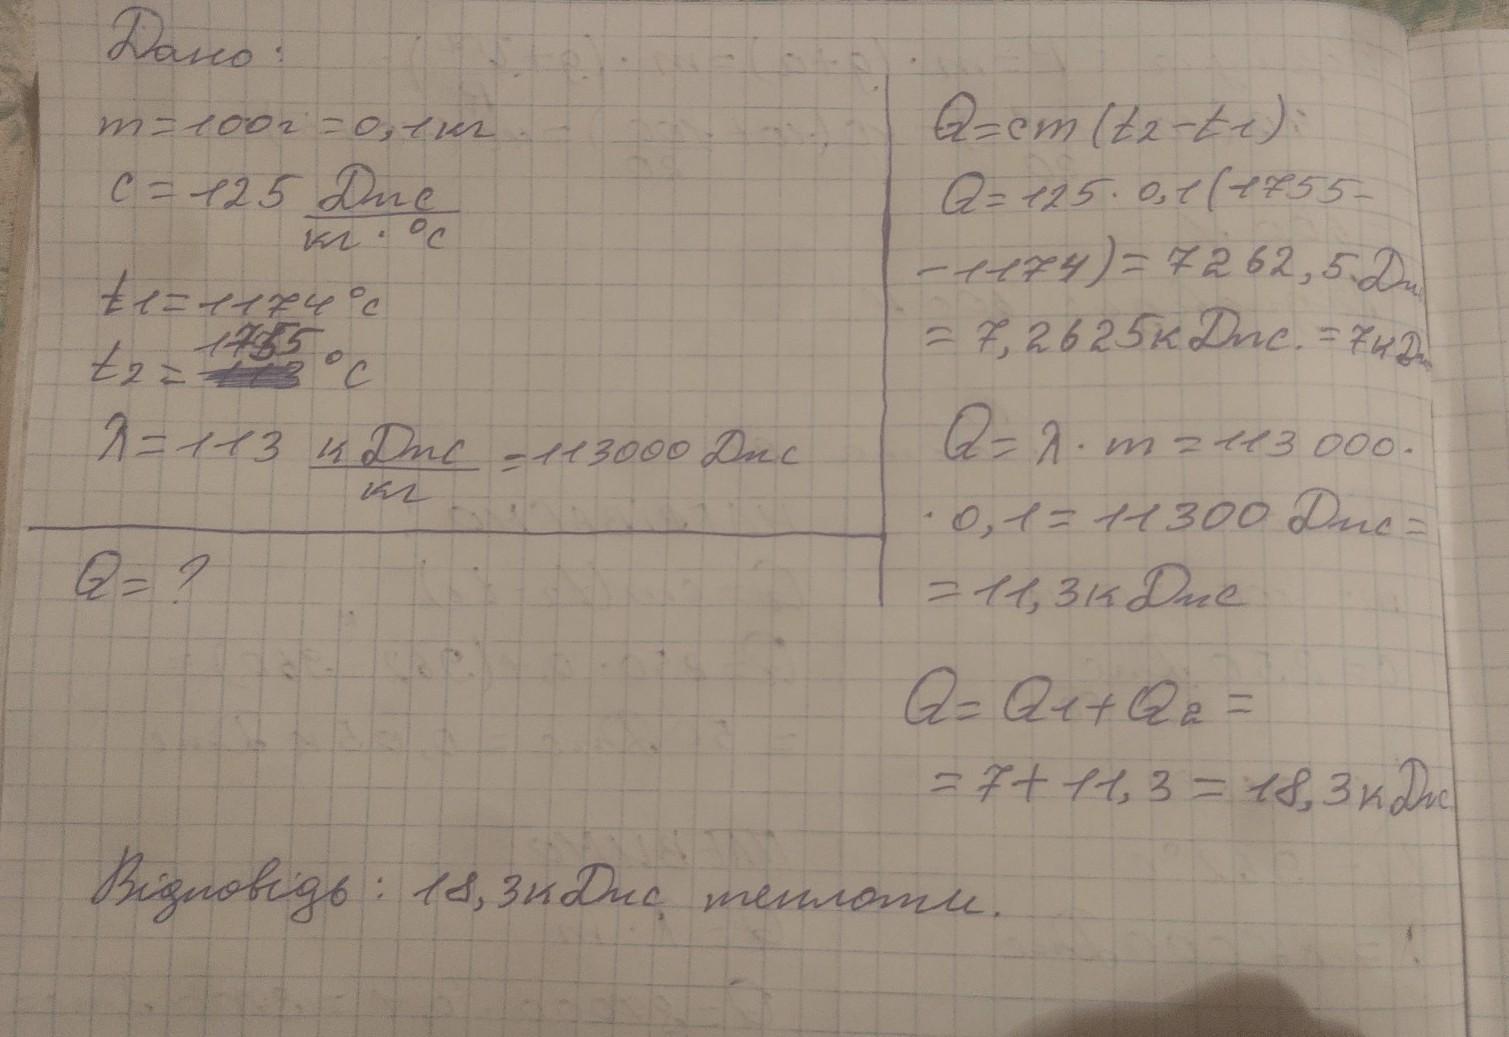 Дано:
m=100г=0,1кг
c=125 Дж
кг·°C
t1=1174°C
1755
t2= °C
λ=113 кДж =113000 Дж
кг
Q=?
Q=cm(t2-t1)
Q=125·0,1(1755-
-1174)=7262,5 Дж
=7,2625кДж.=7кДж
Q=λ·m=113000·
·0,1=11300 Дж=
=11,3кДж
Q=Q1+Q2=
=7+11,3=18,3кДж
Відповідь: 18,3кДж теплоти.